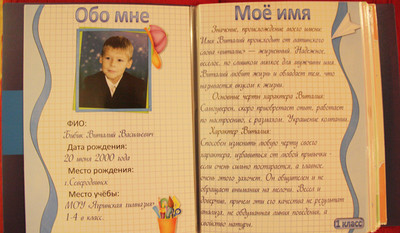 Обо мне
ФИО:
Бабак Виталий Васильевич
Дата рождения:
20 июня 2000 года
Место рождения:
г. Северодвинск
Место учёбы:
МОУ Ягринская гимназия
1-4 в класс.
Моё имя
Значение, происхождение моего имени:
Имя Виталий происходит от латинского
слова «виталис» — жизненный. Надежное,
веселое, но слишком мягкое для мужчины имя.
Виталий любит жизнь и обладает тем, что
называется вкусом к жизни.
Основные черты характера Виталия:
Самоуверен, скоро приобретает опыт, работает
по настроению, с размахом. Украшение компании.
Характер Виталия:
Способен изменить любую черту своего
характера, избавиться от любой привычки
если очень сильно постарается, а главное,
очень этого захочет. Он общителен и не
обращает внимания на мелочи. Весел и
доверчив, причём эти его качества не результат
анализа, не обдуманная линия поведения, а
свойство натуры.
1 класс